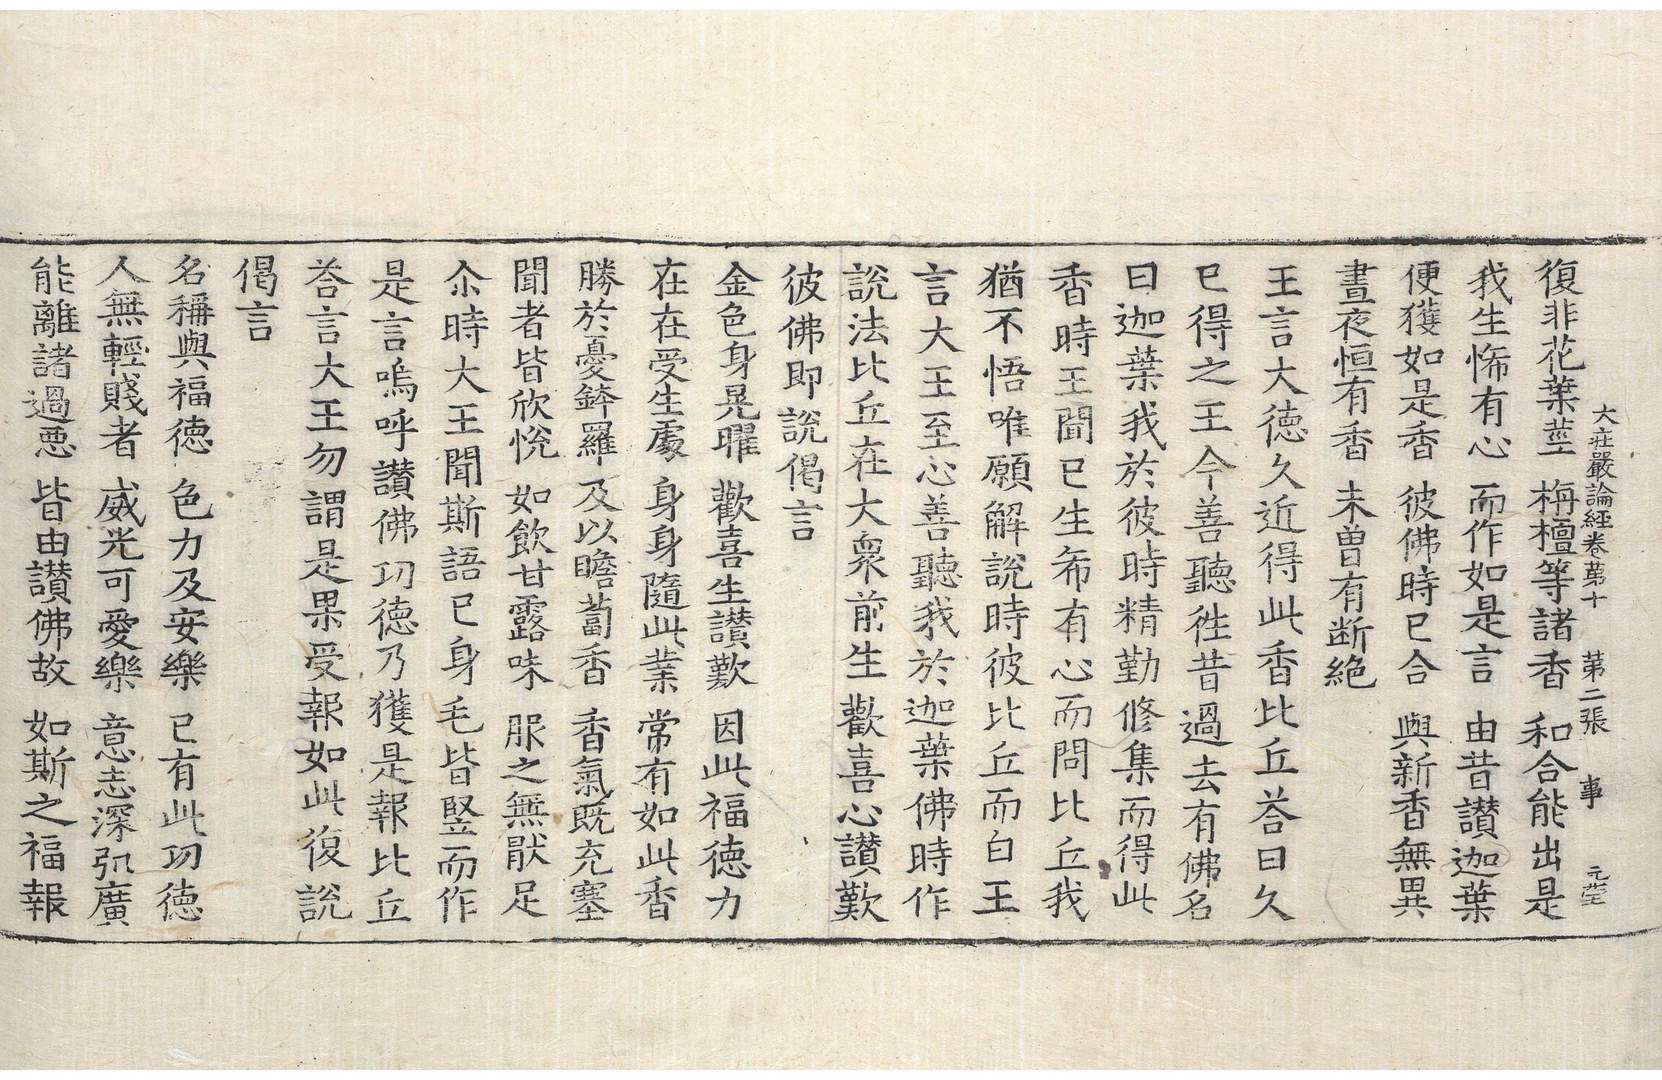 大莊嚴論經卷苐十　苐二張　事　元瑩
復非花葉莖　栴檀等諸香　和合能出是
我生悕有心　而作如是言　由昔讃迦葉
便獲如是香　彼佛時已合　與新香無異
晝夜恒有香　未曽有断絶
王言大德久近得此香比丘荅曰久
已得之王今善聽徃昔過去有佛名
曰迦葉我於彼時精勤修集而得此
香時王聞已生希有心而問比丘我
猶不悟唯願解說時彼比丘而白王
言大王至心善聽我於迦葉佛時作
說法比丘在大衆前生歡喜心讃歎
彼佛即說偈言
金色身晃曜　歡喜生讃歎　因此福德力
在在受生處　身身隨此業　常有如此香
勝於憂鉢羅　及以瞻蔔香　香氣既充塞
聞者皆欣悅　如飲甘露味　服之無猒足
尒時大王聞斯語已身毛皆竪而作
是言嗚呼讃佛㓛德乃獲是報比丘
荅言大王勿謂是果受報如此復說
偈言
名稱與福德　色力及安樂　已有此㓛德
人無輕賤者　威光可愛樂　意志深弘廣
能離諸過惡　皆由讃佛故　如斯之福報